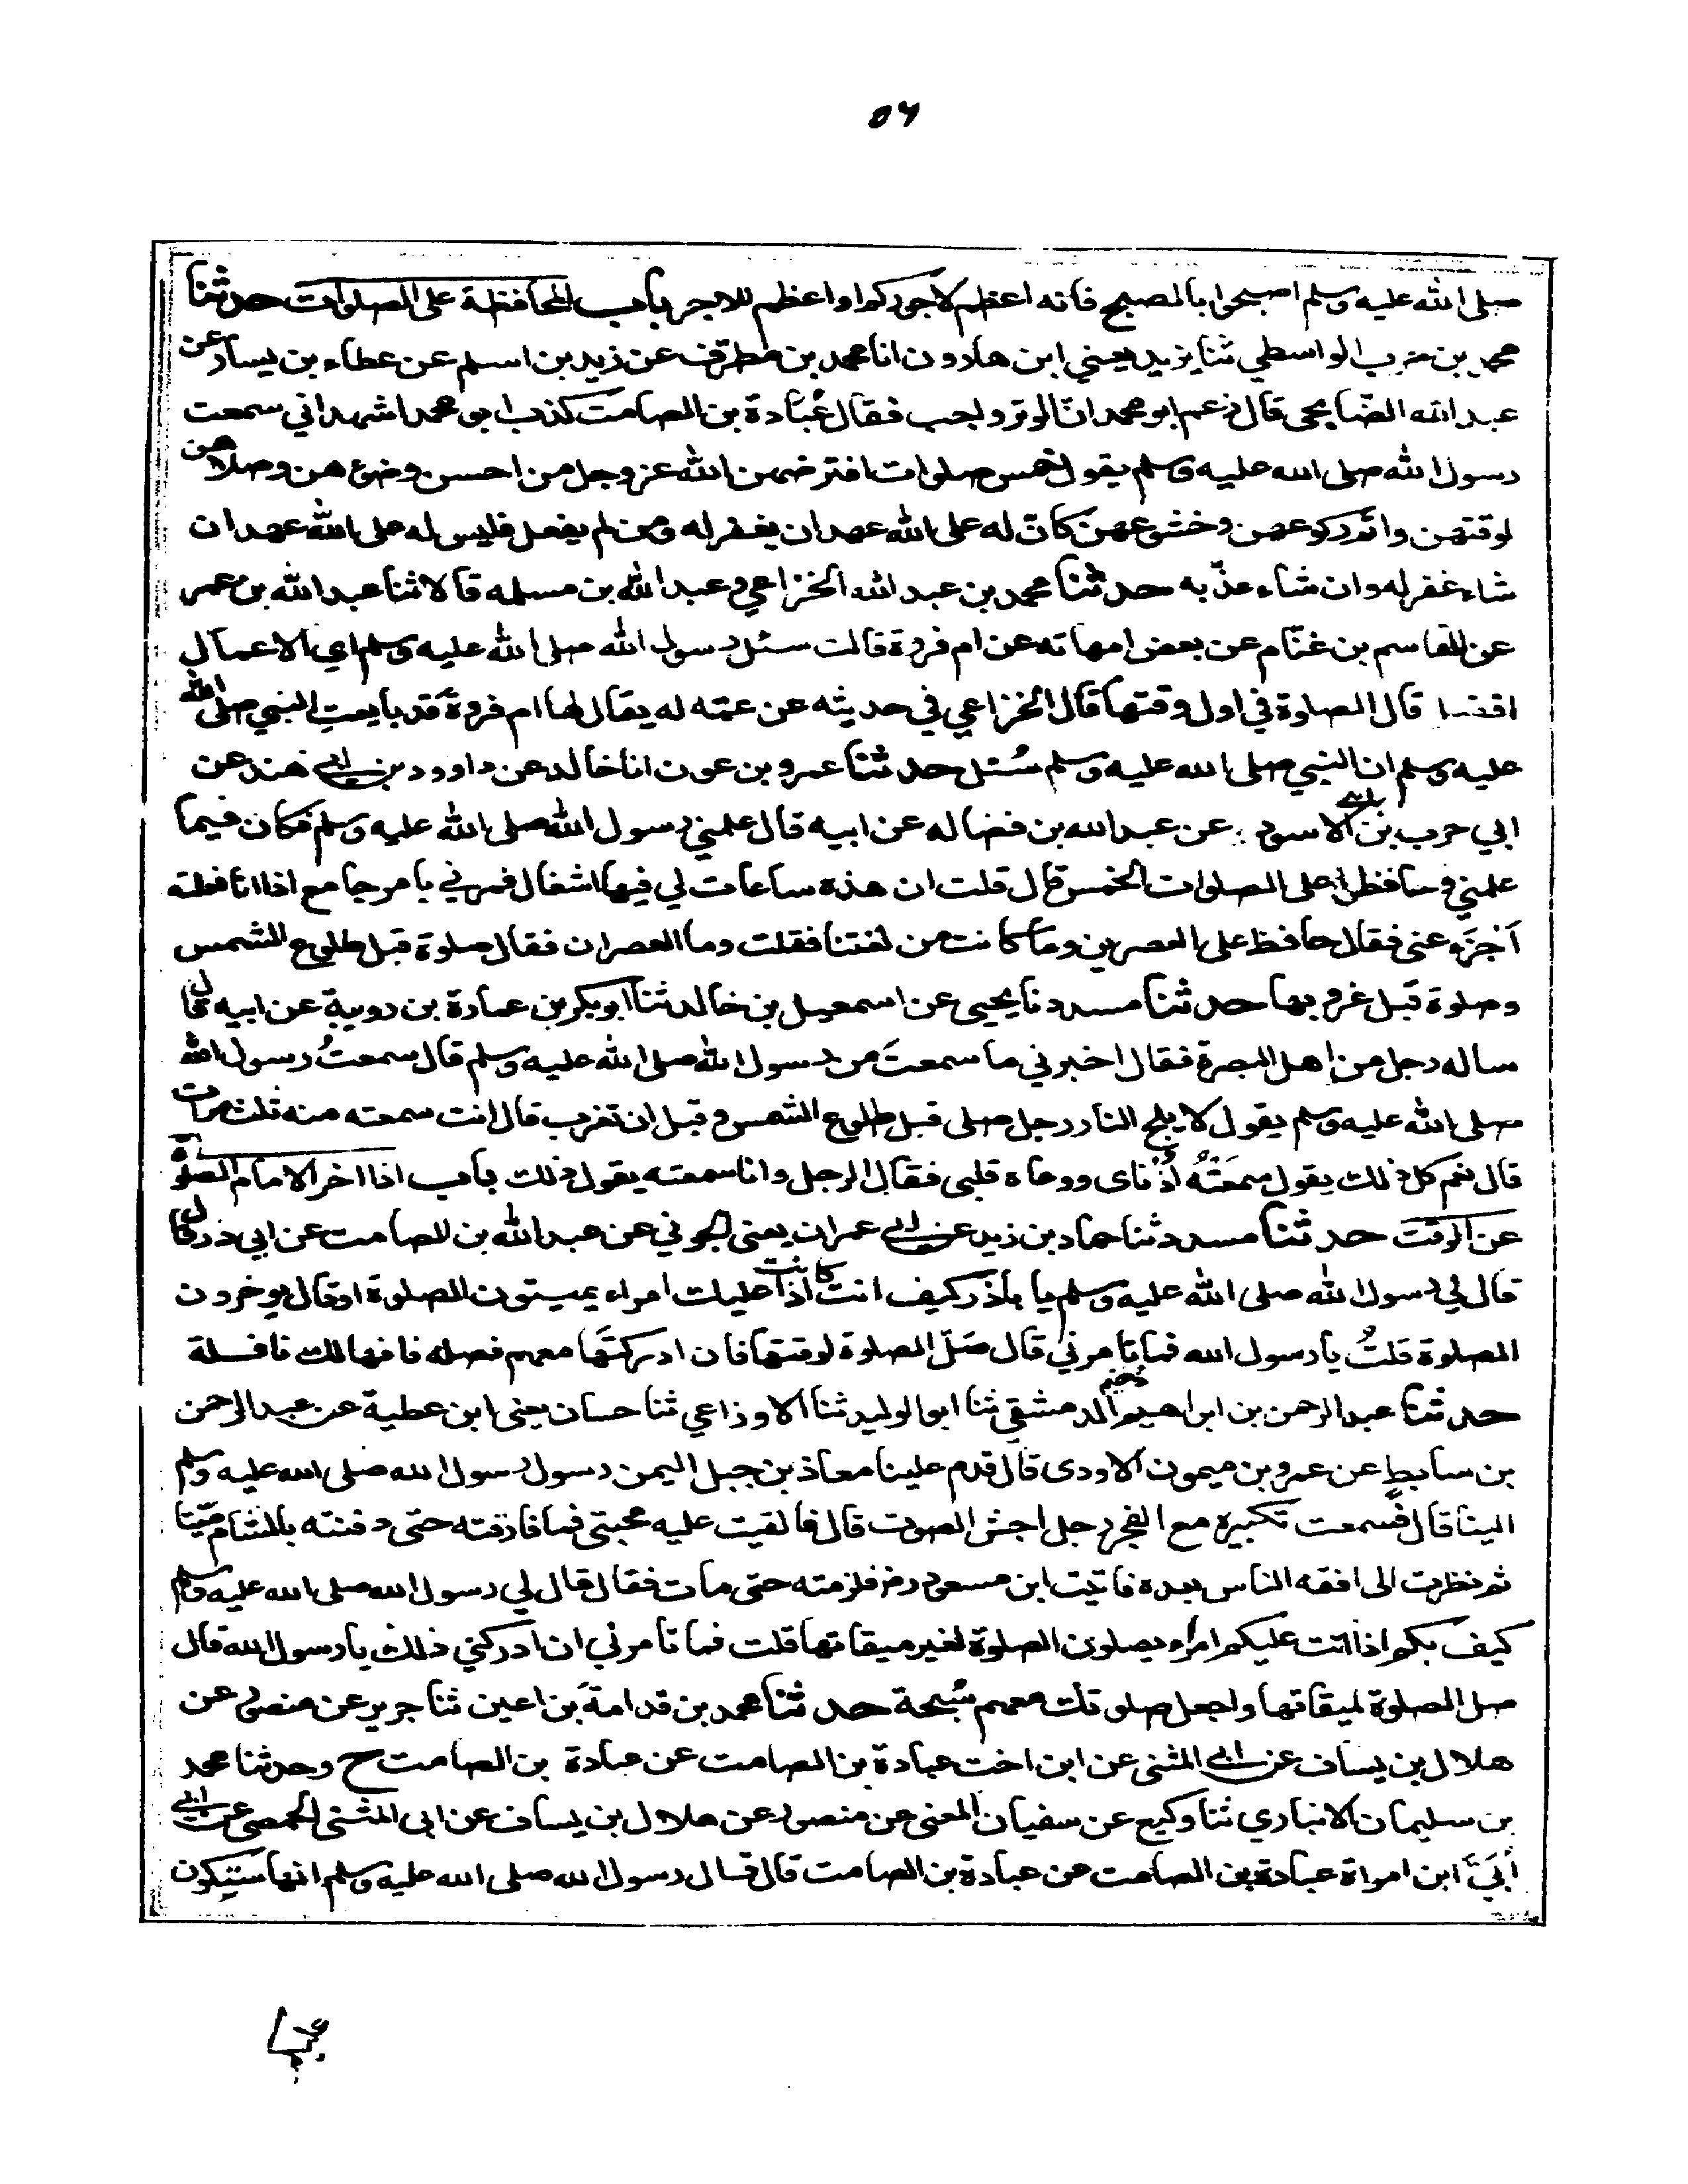 ٥٦
صلى الله عليه وسلم اصبحوا بالصبح فانه اعظم لاجوركم او اعظم للاجر باب المحافظة على الصلوات حدثنا
محمد بن حرب الواسطي ثنا يزيد يعني ابن هارون انا محمد بن مطرف عن زيد بن اسلم عن عطاء بن يسار عن
عبد الله الصنابحي قال زعم ابو محمد ان الوتر واجب فقال عُبَادة بن الصامت كذب ابو محمد اشهد اني سمعت
رسول الله صلى الله عليه وسلم يقول خمس صلوات افترضهن الله عز وجل من احسن وضوءهن وصلاهن
لوقتهن واتم ركوعهن وخشوعهن كان له على الله عهد ان يغفر له ومن لم يفعل فليس له على الله عهد ان
شاء غفر له وان شاء عذّبه حدثنا محمد بن عبد الله الخزاعي وعبد الله بن مسلمه قالا ثنا عبد الله بن عمر
عن القاسم بن غنّام عن بعض امهاته عن ام فروة قالت سئل رسول الله صلى الله عليه وسلم اي الاعمال
افضل قال الصلوة في اول وقتها قال الخزاعي في حديثه عن عمّته له يقال لها ام فروة قد بايعتِ النبي صلى الله
عليه وسلم ان النبي صلى الله عليه وسلم سُئل حدثنا عمرو بن عون انا خالد عن داوود بن ابي هند عن
ابي حرب بن ابي الاسود عن عبد الله بن فضاله عن ابيه قال علمني رسول الله صلى الله عليه وسلم فكان فيما
علمني وحافظ على الصلوات الخمس قال قلت ان هذه ساعات لي فيها اشغال فمرني بامر جامع اذا انا فعلته
اَجزَء عنى فقال حافظ على العصرين وما كانت من لغتنا فقلت وما العصران فقال صلوة قبل طلوع الشمس
وصلوة قبل غروبها حدثنا مسدد نا يحيى عن اسمعيل بن خالد ثنا ابو بكر بن عمارة بن رويبة عن ابيه قال
ساله رجل من اهل البصرة فقال اخبرني ما سمعتَ من رسول الله صلى الله عليه وسلم قال سمعتُ رسول الله
صلى الله عليه وسلم يقول لا يلج النار رجل صلى قبل طلوع الشمس وقبل ان تغرب قال انت سمعته منه ثلث مرات
قال نعم كل ذلك يقول سمعَتْهُ اُذُناى ووعاه قلبى فقال الرجل وانا سمعته يقول ذلك باب اذا اخر الامام الصلوة
عن الوقت حدثنا مسدد ثنا حماد بن زيد عن ابي عمران يعنى الجوني عن عبد الله بن الصامت عن ابي ذر قال
قال لي رسول الله صلى الله عليه وسلم يا باذر كيف انت اذا كانت عليك امراء يميتون الصلوة او قال يوخرون
الصلوة قلتُ يا رسول الله فما تامرني قال صَلّ الصلوة لوقتها فان ادركتَها معهم فصله فانها لك نافلة
حدثنا عبد الرحمن بن ابراهيم دُحَيم الدمشقي ثنا ابو الوليد ثنا الاوزاعي ثنا حسان يعنى ابن عطية عن عبد الرحمن
بن سابطٍ عن عمرو بن ميمون الاودى قال قدم علينا معاذ بن جبل اليمن رسول رسول الله صلى الله عليه وسلم
الينا قال فسمعت تكبيره مع الفجر رجل اجش الصوت قال فالقيت عليه محبتى فما فارقته حتى دفنته بالشام ميّتا
ثم نظرت الى افقه الناس بعده فاتيت ابن مسعود رض فلزمته حتى مات فقال قال لي رسول الله صلى الله عليه وسلم
كيف بكم اذا اتت عليكم امراء يصلون الصلوة لغير ميقاتها قلت فما تامرني ان ادركني ذلك يا رسول الله قال
صل الصلوة لميقاتها واجعل صلوتك معهم سُبحة حدثنا محمد بن قدامة بن اعين ثنا جرير عن منصور عن
هلال بن يساف عن ابي المثنى عن ابن اخت عبادة بن الصامت عن عبادة بن الصامت ح وحدثنا محمد
بن سليمان الانباري ثنا وكيع عن سفيان المعنى عن منصور عن هلال بن يساف عن ابى المثنى الحمصي عن ابي
اُبَيَّ ابن امراة عبادة بن الصامت عن عبادة بن الصامت قال قال رسول الله صلى الله عليه وسلم انها ستكون